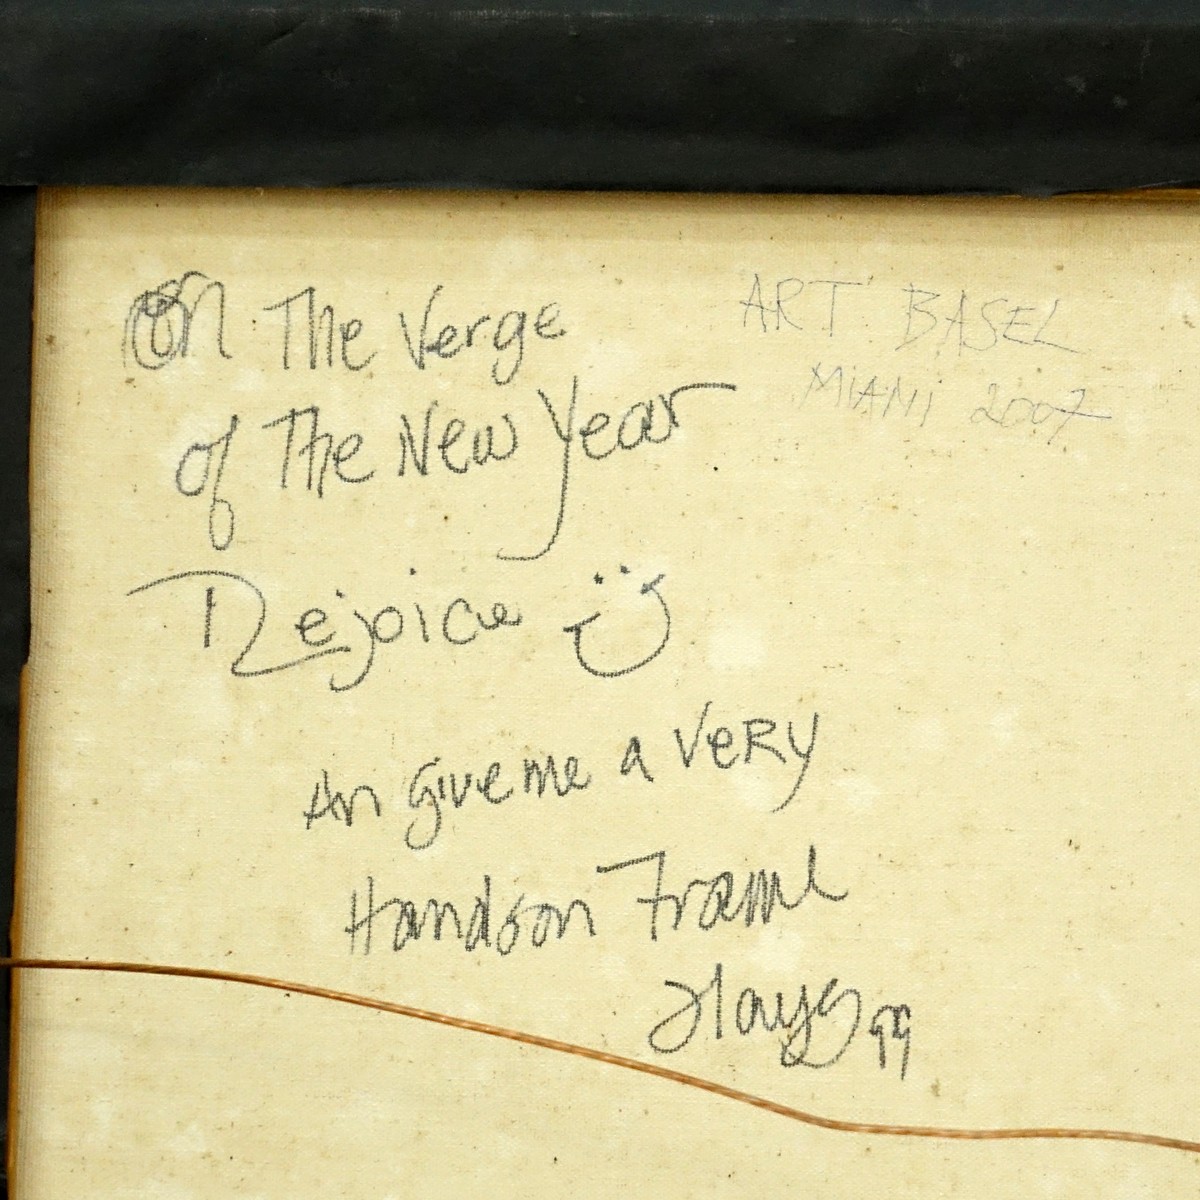 On The Verge
of The New Year
Rejoice
An give me a Very
Handson Frame
Hays 99
ART BASEL
MIAMI 2007